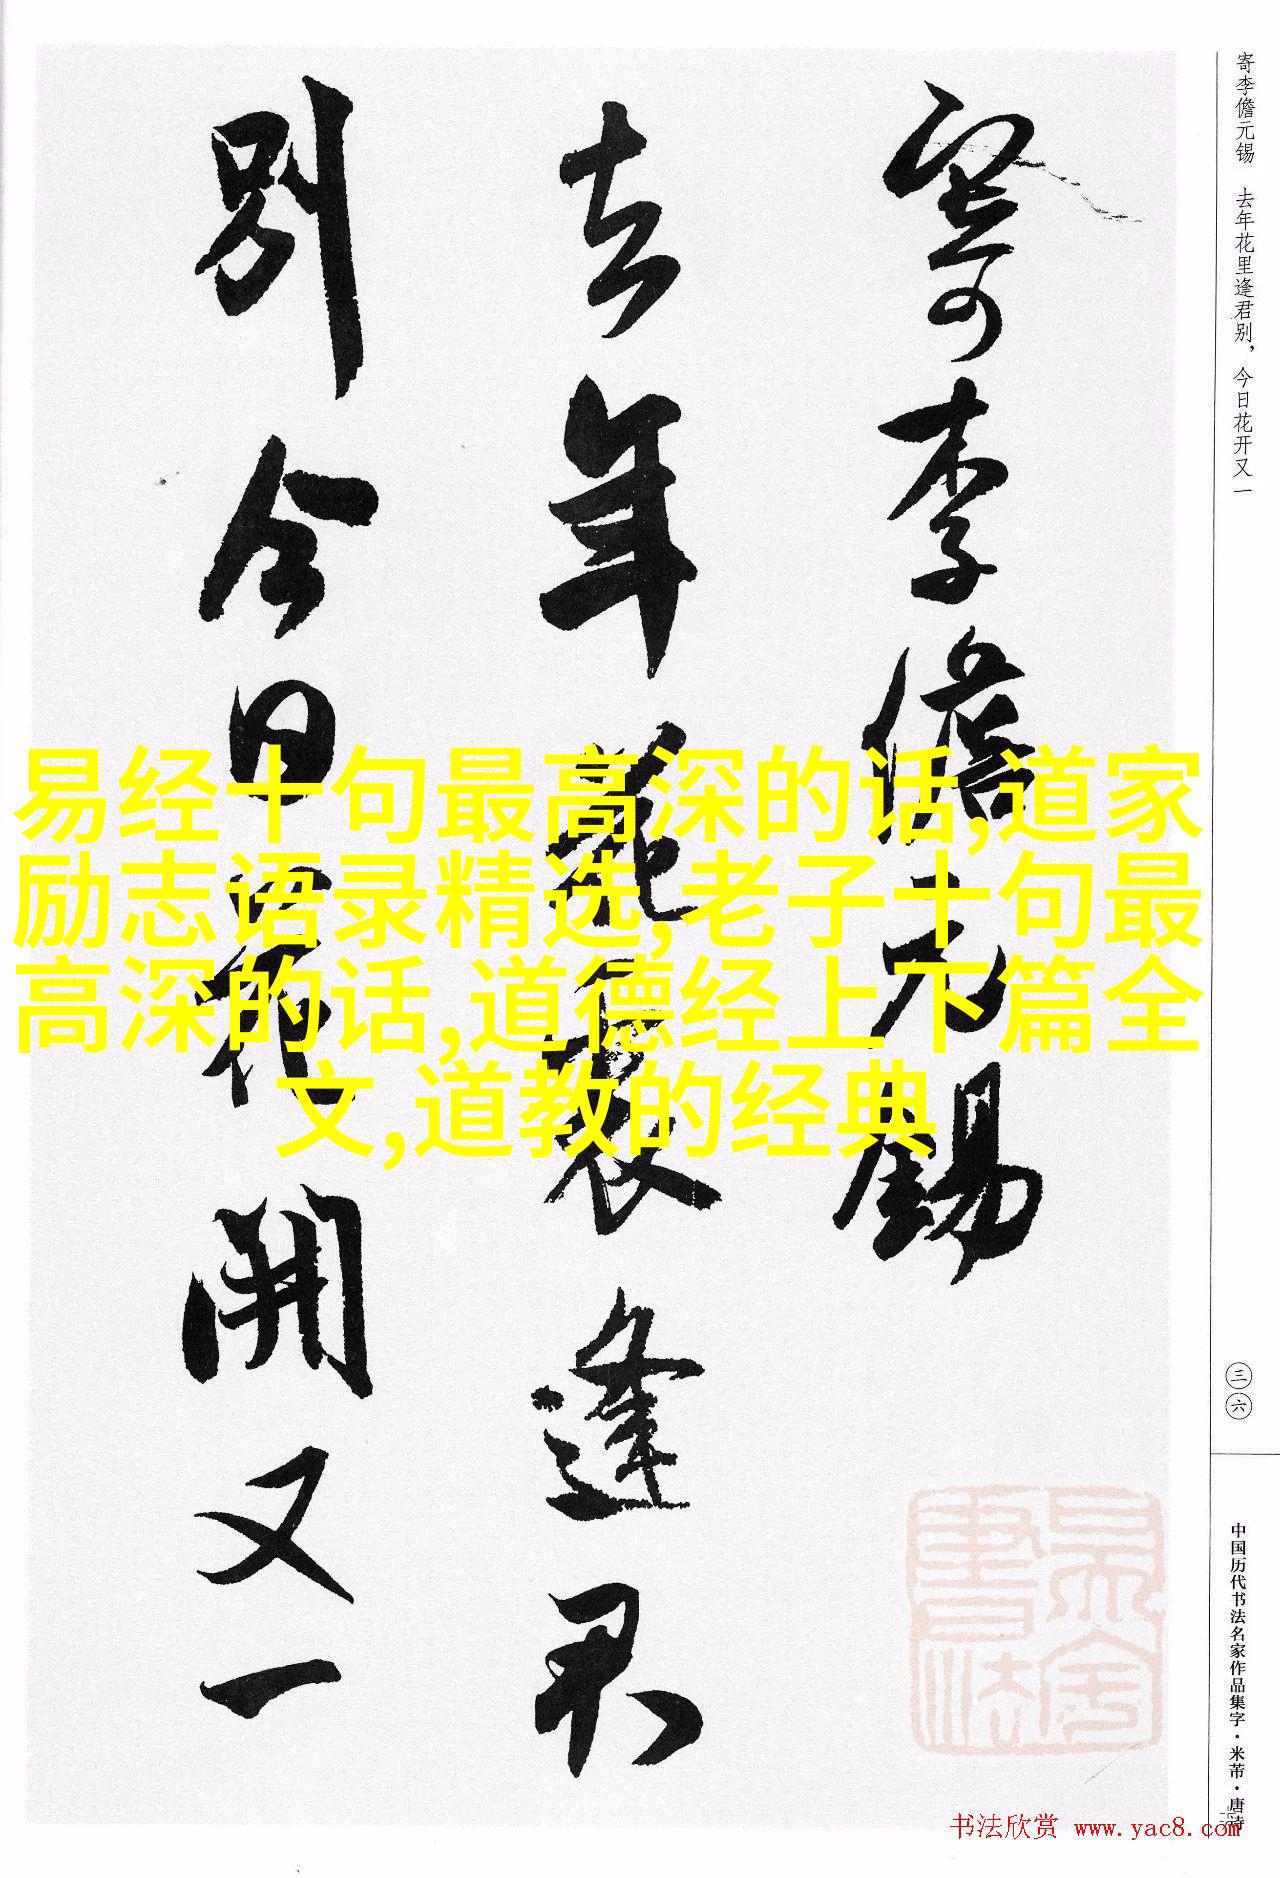 寄李儋元锡 去年花里逢君别，今日花开又一
寄李儋元錫
去年花裏逢君
別今日花開又一
易经十句最高深的话,道家
励志语录精选,老子十句最
高深的话,道德经上下篇全
文,道教的经典
三六
中国历代书法名家作品集字·米芾·唐诗
书法欣赏 www.yac8.com